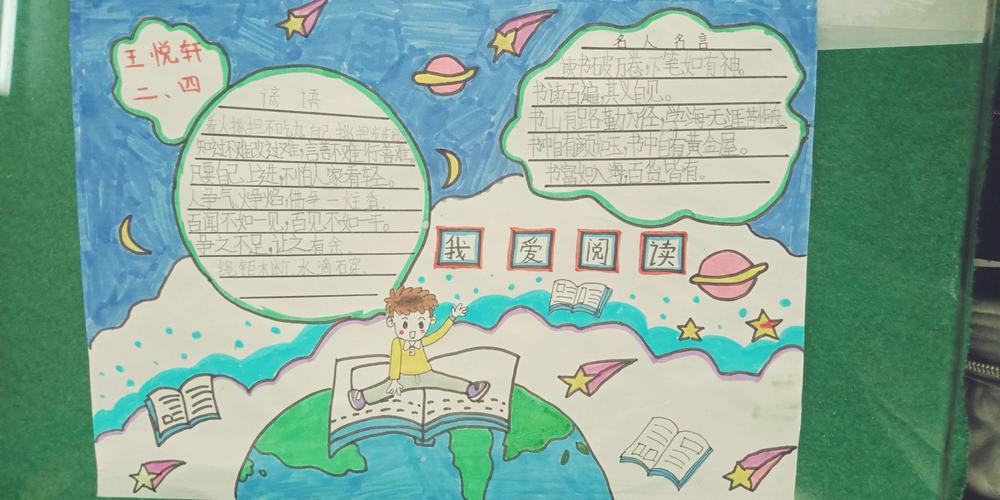 王悦轩
二、四
谚语
知过不难改过难,言善不难行善难
只要自己上进,不怕人家看轻。
人争气,火争焰,佛争一炷香。
百闻不如一见,百见不如一干。
争之不足,让之有余。
绳锯木断,水滴石穿。
名人名言
读书破万卷,下笔如有神。
书读百遍,其义自见。
书山有路勤为径,学海无涯苦作舟。
书中自有颜如玉,书中自有黄金屋。
书富如入海,百货皆有。
我爱阅读